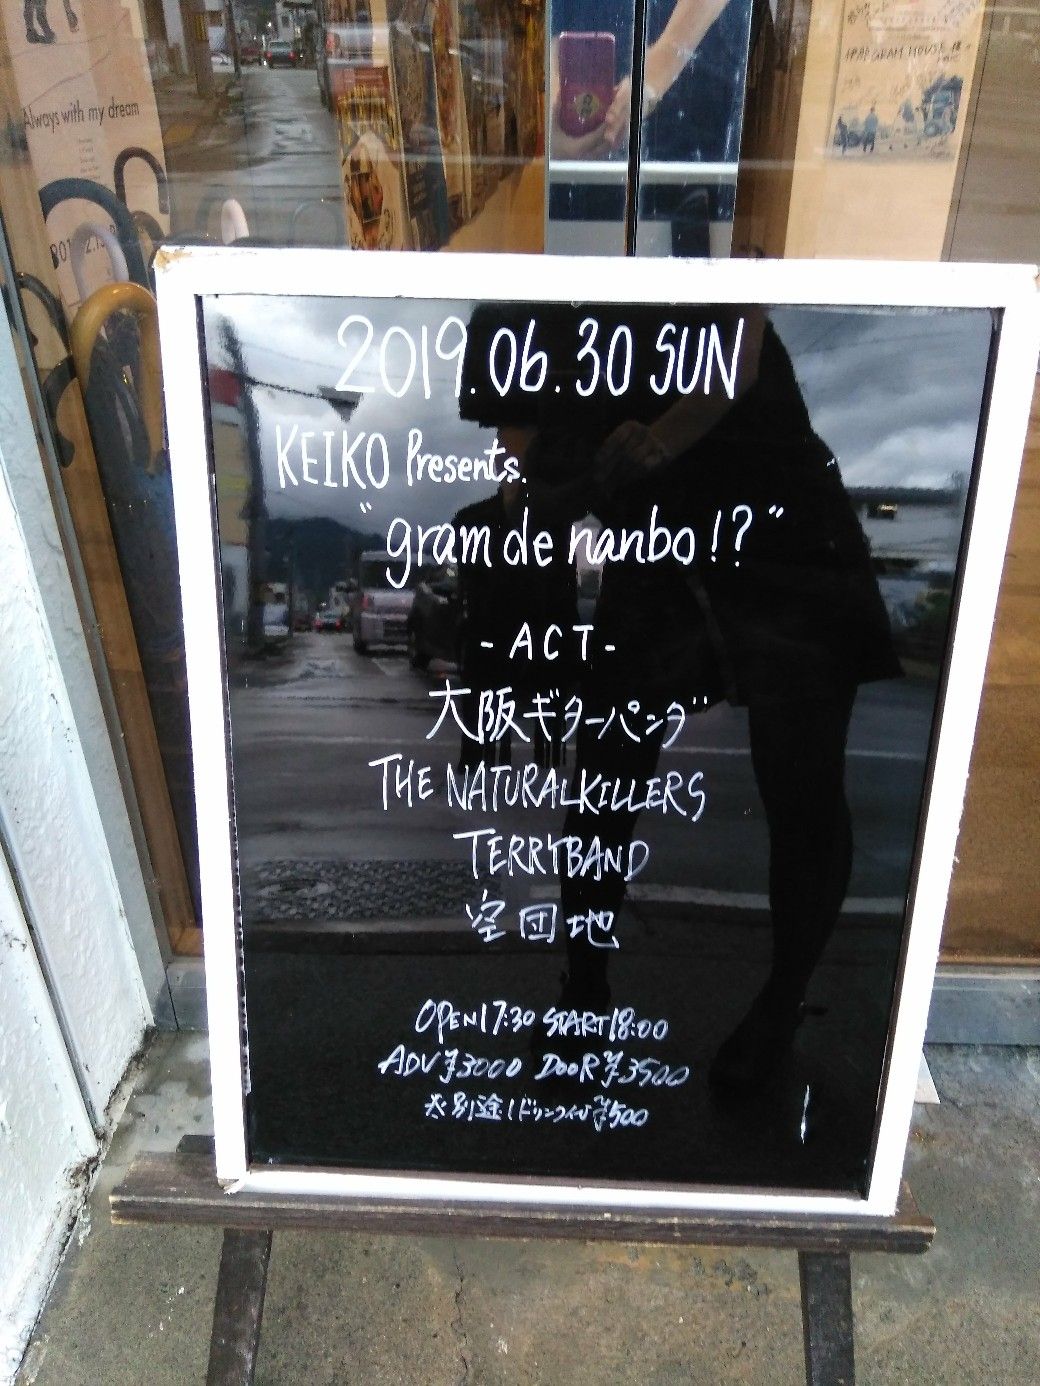 Always with my dream
GRAM HOUSE
2019.06.30 SUN
KEIKO Presents.
"gram de nanbo!?"
- ACT -
大阪ギターパンダ
THE NATURALKILLERS
TERRYBAND
空団地
OPEN17:30 START18:00
ADV¥3000 DOOR¥3500
※別途1ドリンクイン¥500